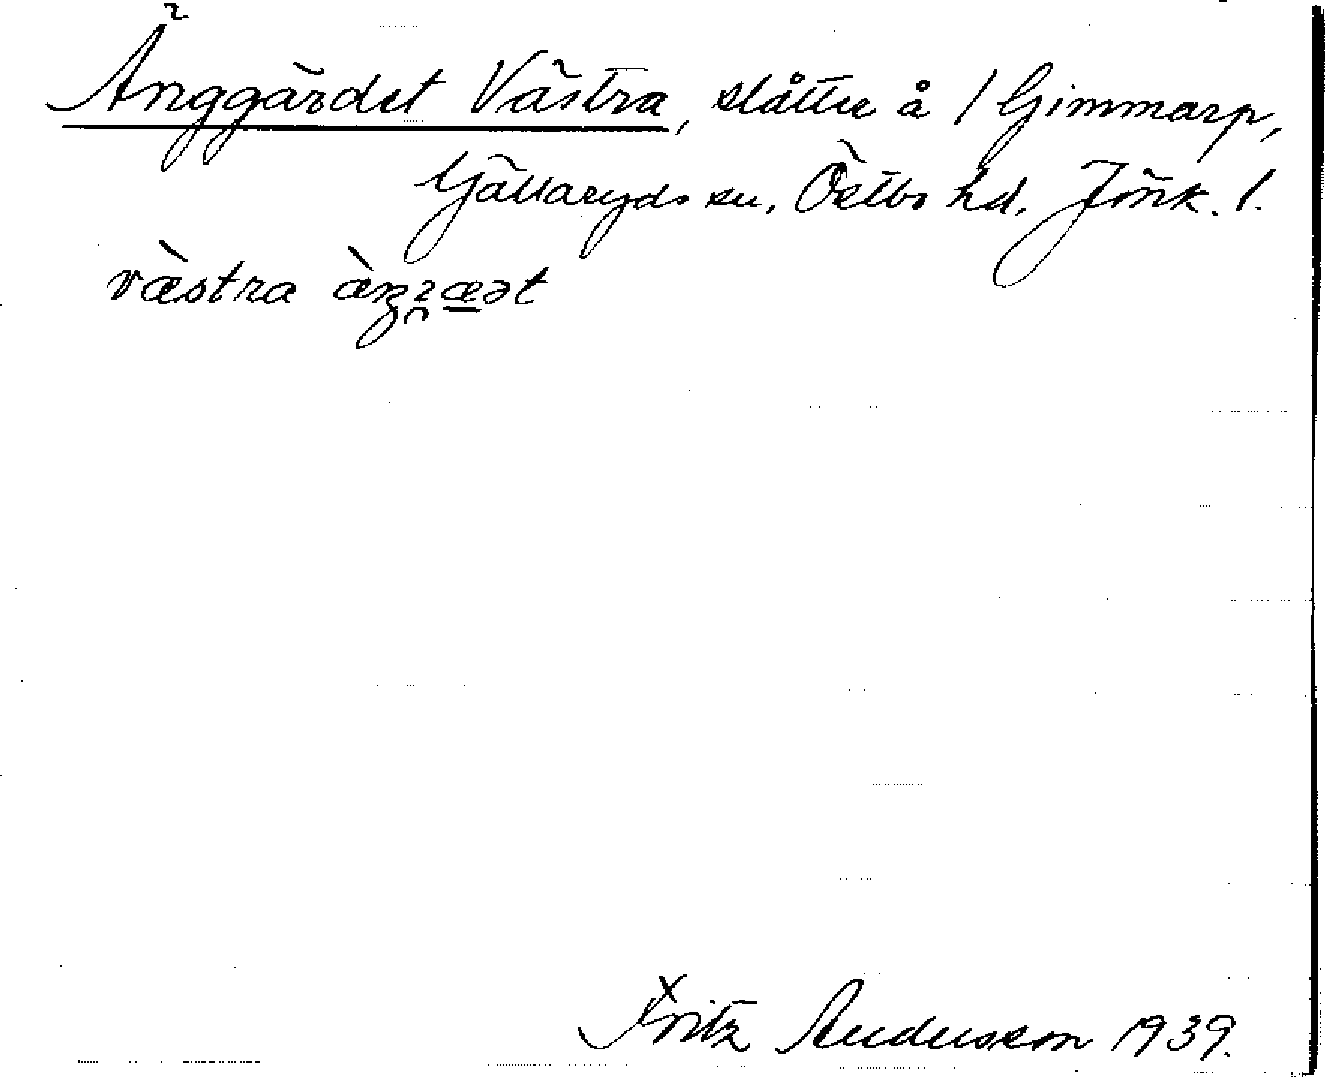 Änggärdet Västra, slåtter å / Gimmarp,
Gällaryds sn, Östbo hd. Jönk. l.
västra
Fritz Andersson 1939.